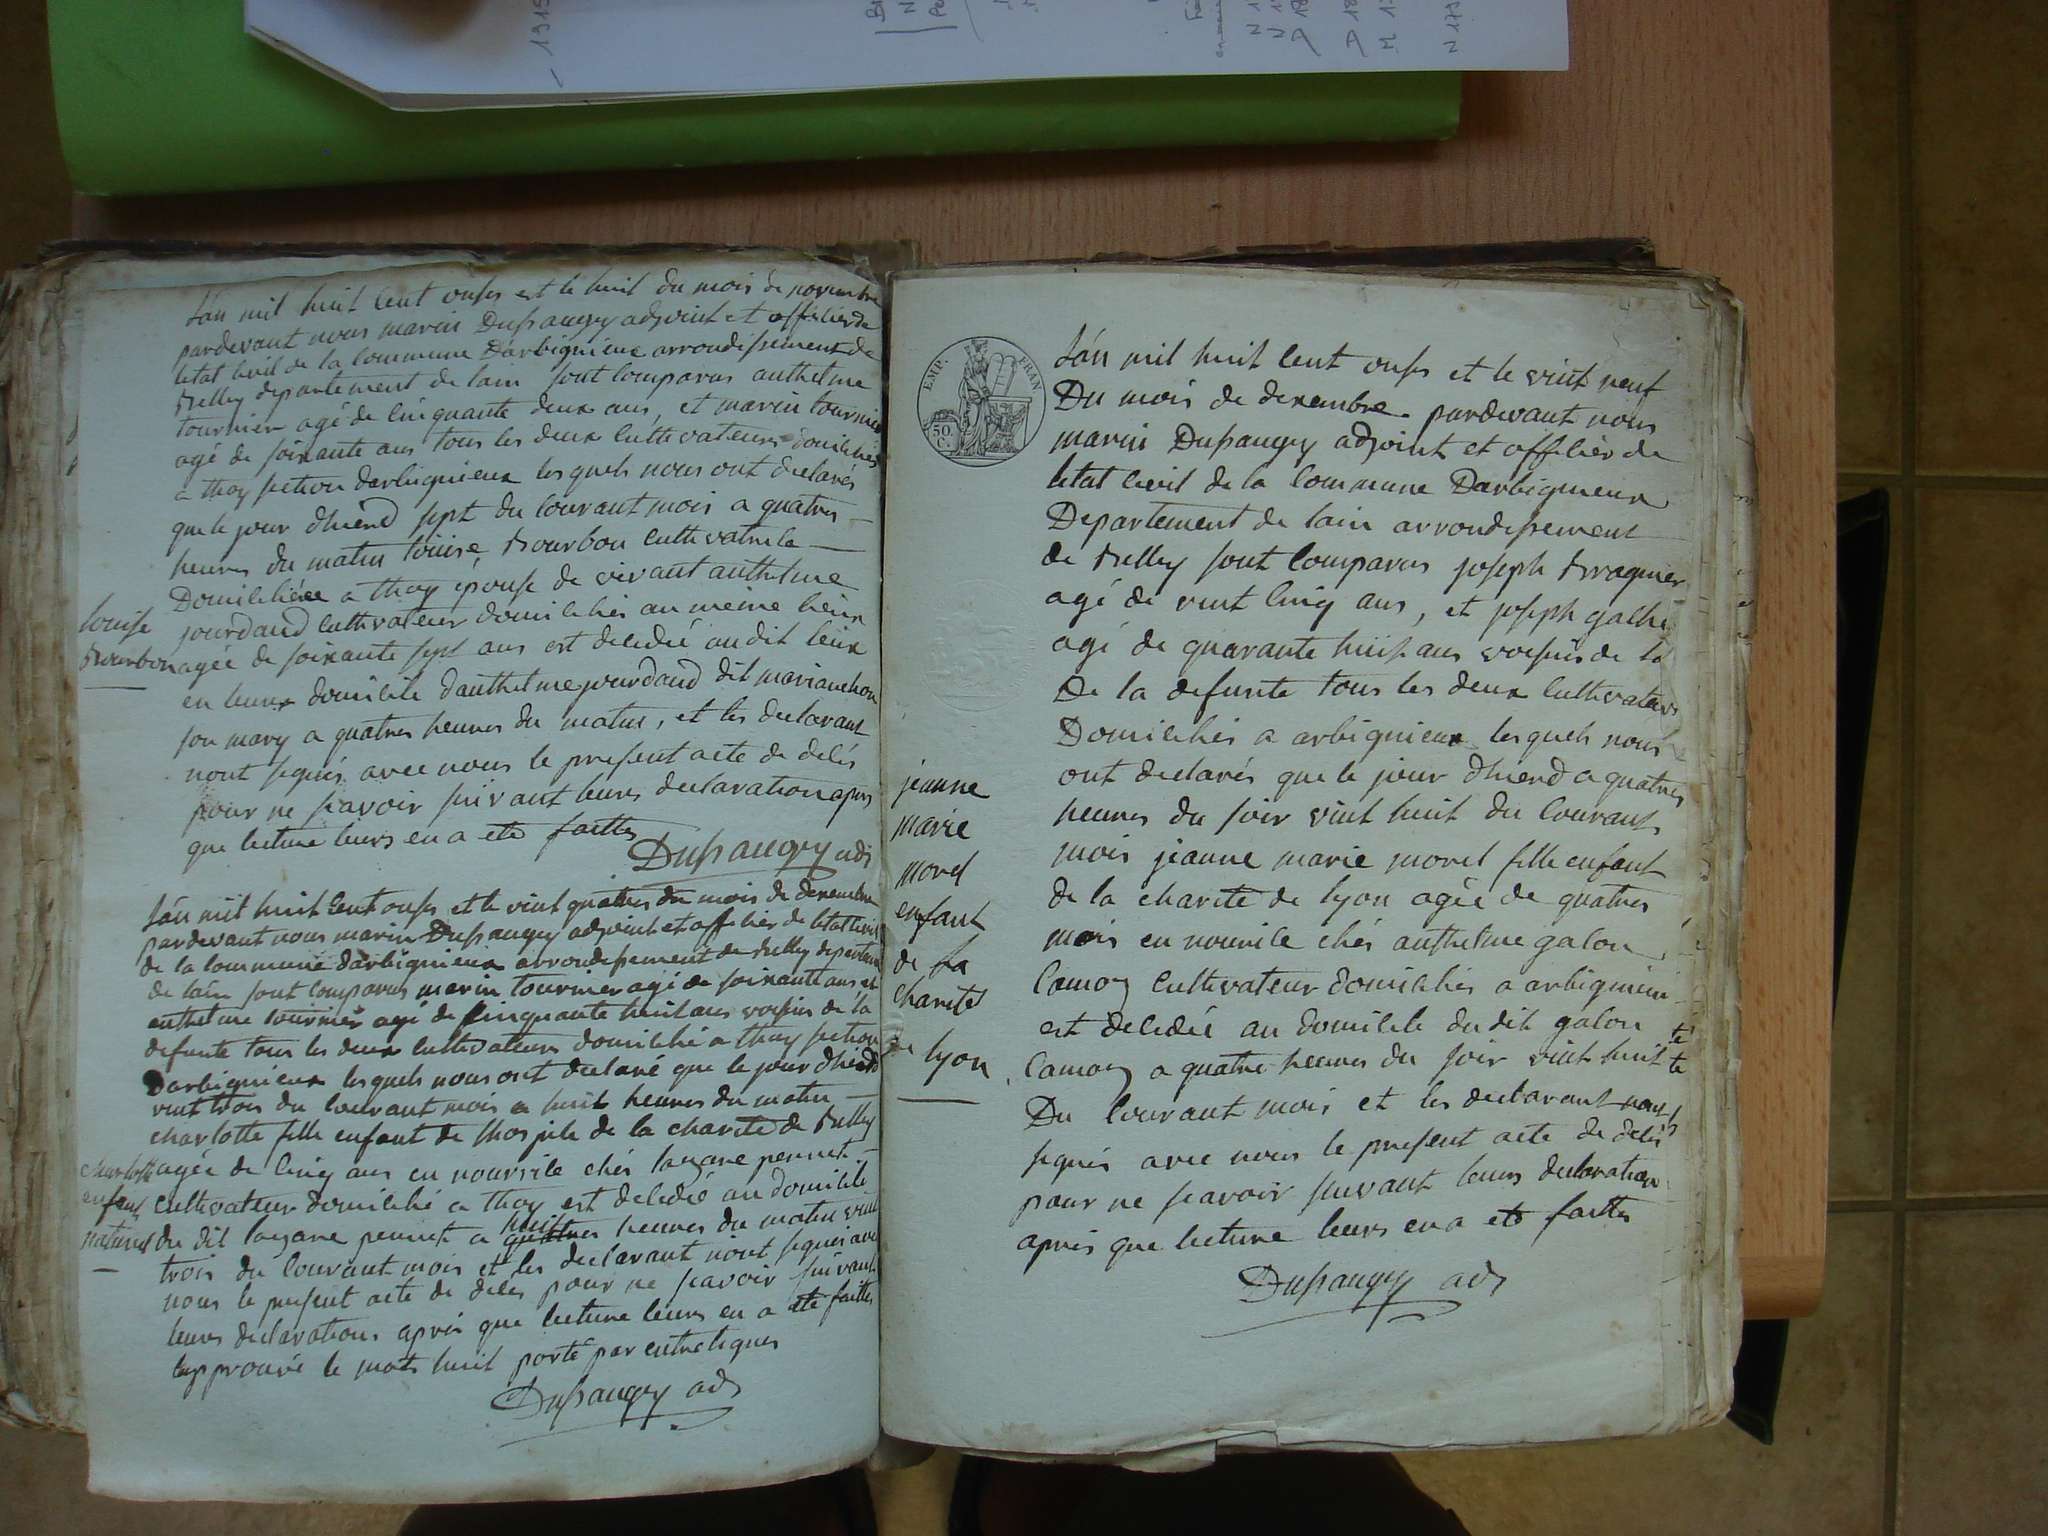 1915
N 179
Lán mil huit Cent onses est le huit du mois de novembre
pardevant nous marin Dupraugey adjoint et officier de
letat Civil de la Commune Darbignieux arrondissement de
Belley departement de lain sont Comparus anthelme
tournier agé de Cinquante deux ans, et marin tournier
agé de soixante ans tous les deux Cultivateurs domiciliés
a thoy section darbignieux lesquels nous ont declarés
que le jour dhierd sept du Courant mois a quatres
heures du matin louise Bourbon Cultivatrile
Domiciliéee a thoy épouse de vivant anthelme
jourdand Cultivateur domiciliés au meme lieux
louise
Bourbon
agée de soixante sept ans est decedée au dit lieux
en leurs domicile danthelme jourdand dit marianchon
son mary a quatres heures du matin, et les declarant
nont signés avec nous le present acte de decés
pour ne scavoir suivant leurs declaration apres
que lecture leurs en a ete faittes
adj
Lán mil huit Cent onses et le vint quatres du mois de desembre
pardevant nous marin adjoint et officier de letat Civil
de la Commune darbignieux arrondissement de Belley departement
de lain sont Comparus marin tournier agé de soixante ans et
anthelme tournier agé de Cinquante huit ans voisins de la
defunte tous les deux Cultivateurs domicilié a thoy section
Darbignieux lesquels nous ont declaré que le jour dhierd
vint trois du Courant mois a huit heures du matin
charlotte fille enfant de lhospile de la charité de Belley
charlotte
enfant
naturel
agée de Cinq ans en nourrile chés lazare pernet
Cultivateur domicilié a thoy est decedée au domicile
du dit lazare pernet a huit quattres heures du matin vint
trois du Courant mois et les declarant nont signés avec
nous le present acte de decés pour ne scavoir suivant
leurs declarations aprés que lecture leurs en a ete faittes
approuvé le mots huit porté par entrelignes
ads
EMP. FRAN
50 C.
Lán mil huit Cent onses et le vint neuf
Du mois de desembre pardevant nous
marin adjoint et officièr de
letat Civil de la Commune Darbignieux
Departement de lain arrondissement
de Belley sont Comparus joseph
agé de vint Cinq ans, et joseph
agé de quarante huit ans voisins de la
De la defunte tous les deux Cultivateurs
Domiciliés a arbignieux lesquels nous
ont declarés que le jour dhierd a quatres
heures du soir vint huit du Courant
mois jeanne marie morel fille enfant
de la charité de lyon agée de quatres
mois en nourrile chés anthelme galon
Camoz Cultivateur domiciliés a arbignieux
est decedée au domicile du dit galon
Camoz a quatre heures du soir vint huit
Du Courant mois et les declarant nont
signés avec nous le present acte de decés
pour ne scavoir suivant leurs declaration
aprés que lecture leurs en a ete faittes
ads
jeanne
marie
morel
enfant
de la
charité
de lyon